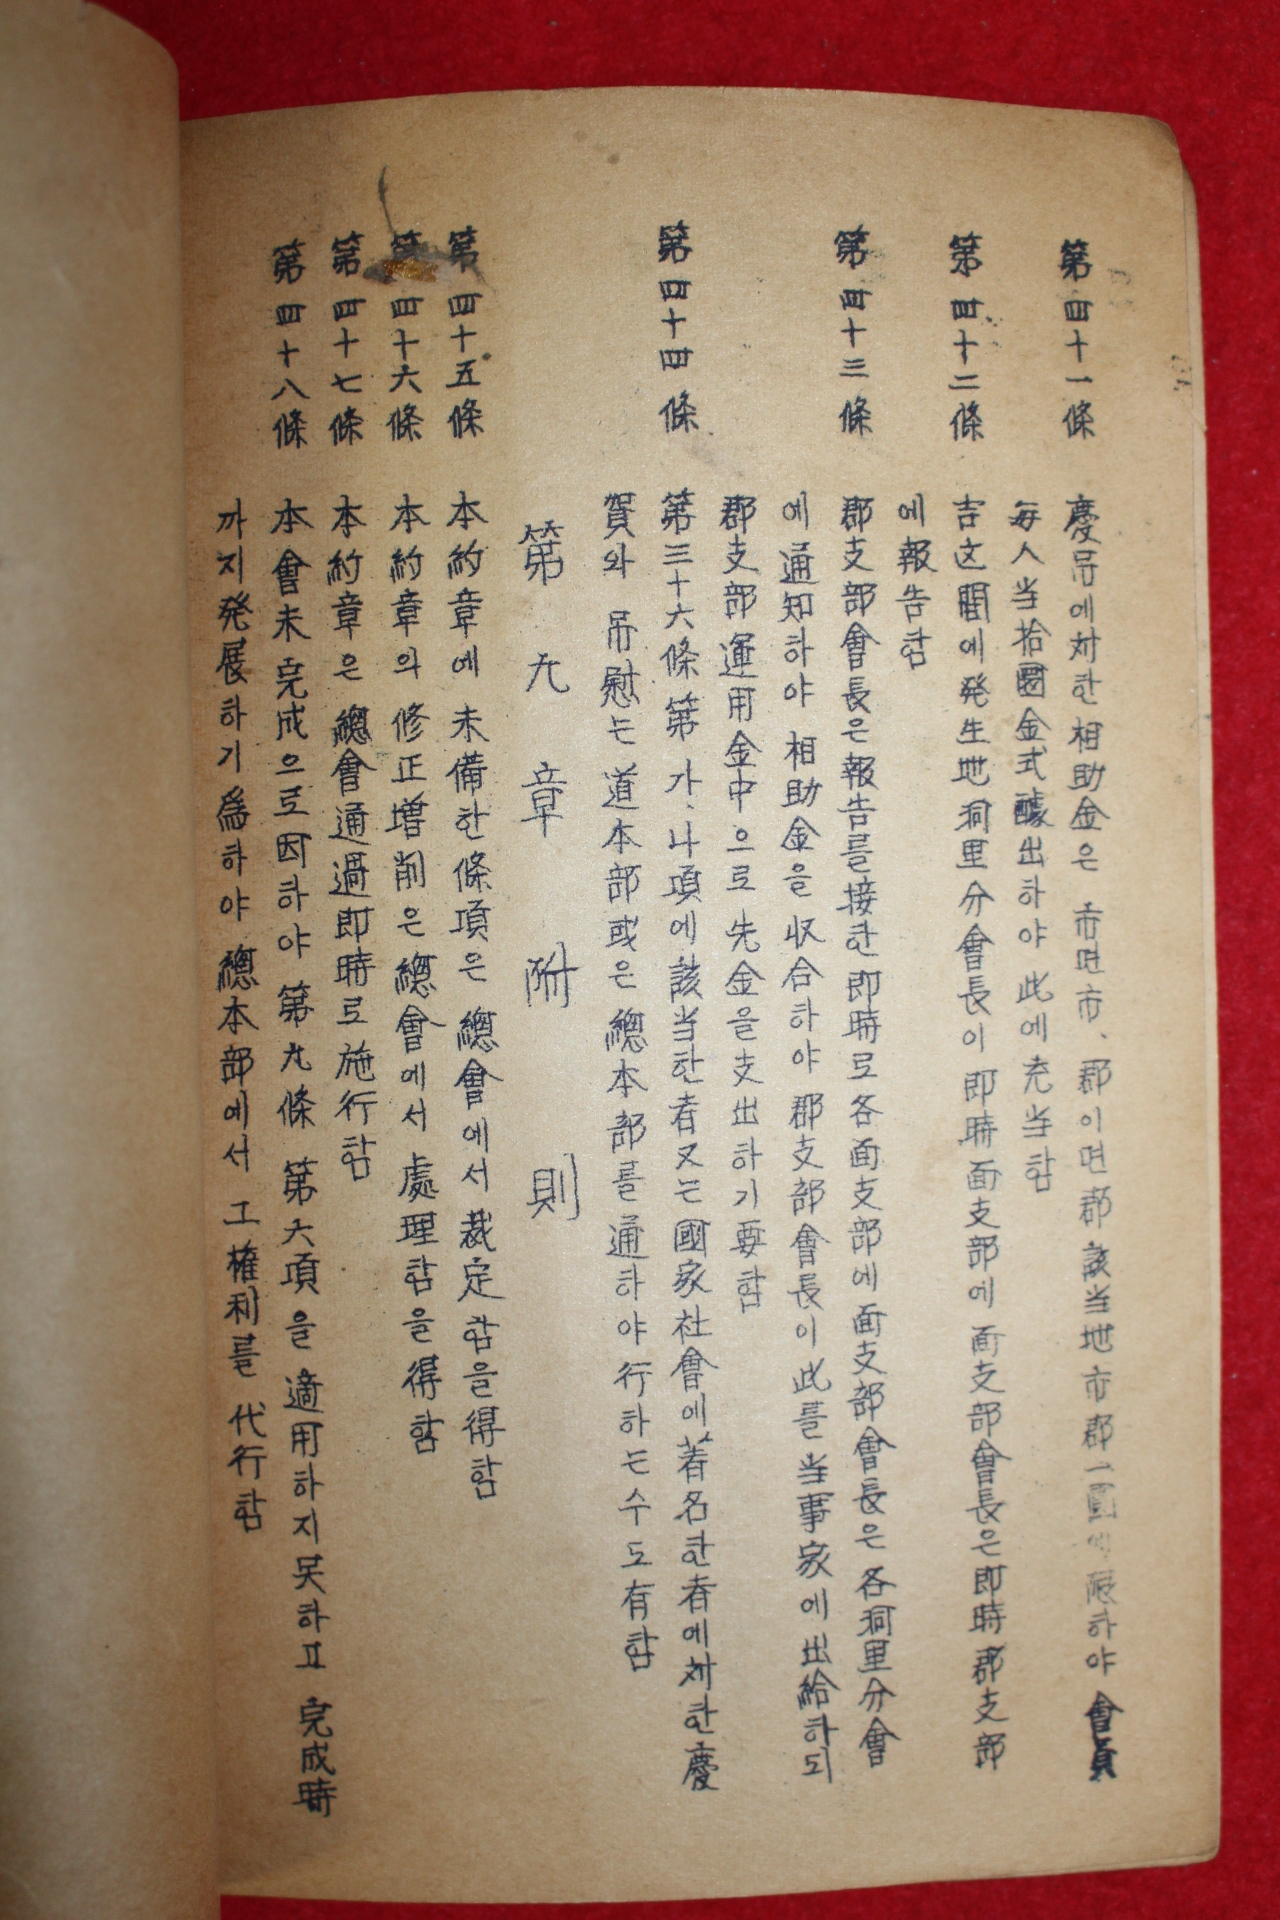 第四十一條 慶吊에対한相助金은 市면市、郡이면郡 該当地市郡一圓에限하야 會員
每人当拾圜金式醵出하야 此에充当함
第四十二條 吉凶間에発生地洞里分會長이 即時面支部에 面支部會長은即時郡支部
에報告함
第四十三條 郡支部會長은報告를接한即時로各面支部에面支部會長은各洞里分會
에通知하야 相助金을収合하야 郡支部會長이此를当事家에出給하되
郡支部運用金中으로先金을支出하기要함
第四十四條 第三十六條第가、나項에該当한者又는國家社會에著名한者에対한慶
賀와 吊慰는 道本部或은總本部를通하야行하는수도有함
第九章 附則
第四十五條 本約章에 未備한條項은 總會에서裁定함을得함
第四十六條 本約章의 修正增削은總會에서 處理함을得함
第四十七條 本約章은總會通過即時로施行함
第四十八條 本會未完成으로因하야 第九條 第六項을適用하지못하고 完成時
까지発展하기爲하야 總本部에서 工權利를 代行함